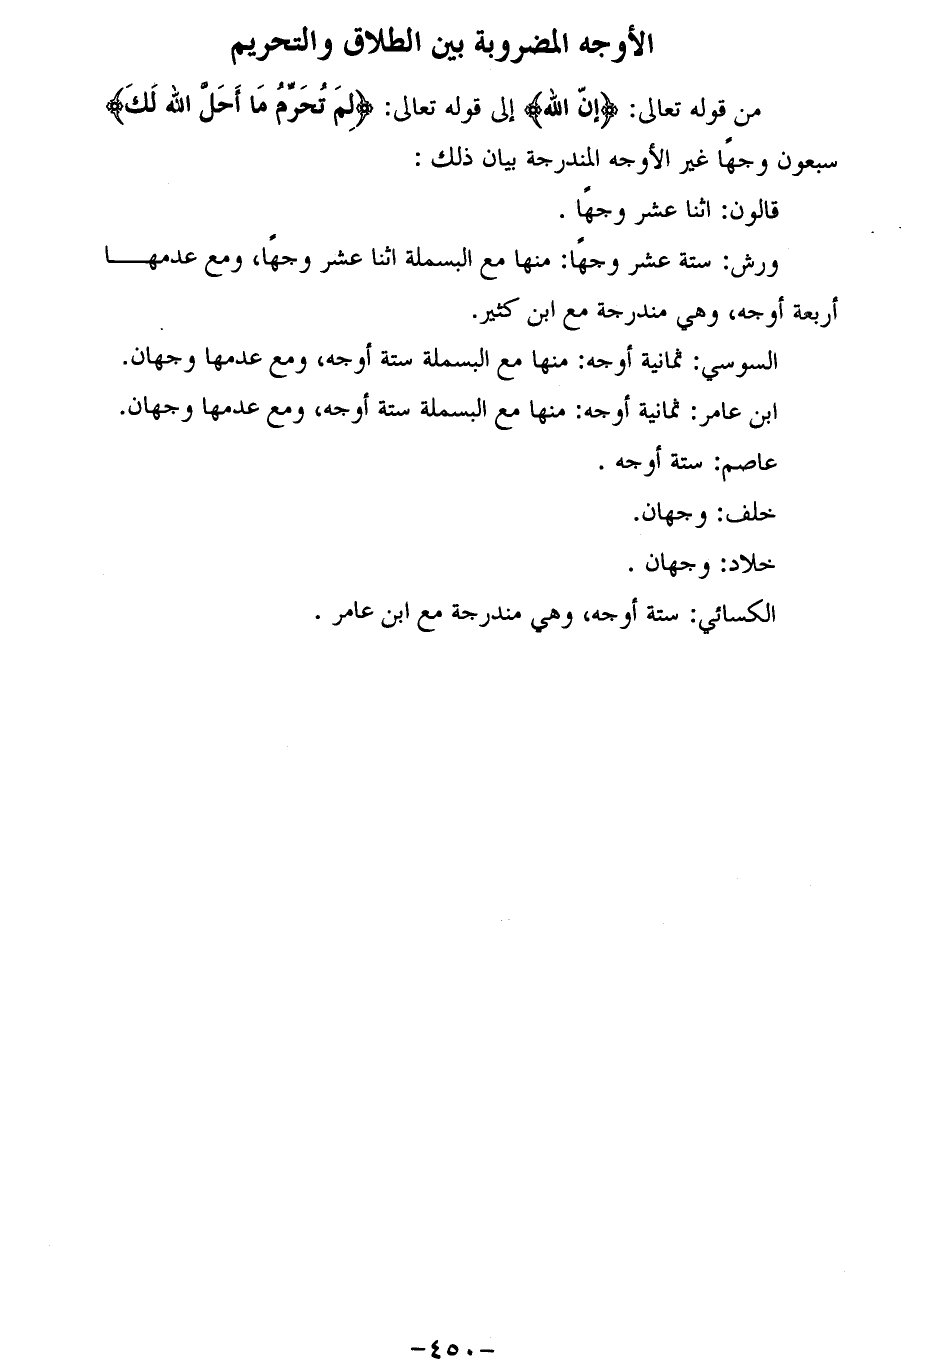 الأوجه المضروبة بين الطلاق والتحريم
من قوله تعالى: ﴿إنّ الله﴾ إلى قوله تعالى: ﴿لِمَ تُحَرِّمُ مَا أَحَلَّ الله لَكَ﴾
سبعون وجهًا غير الأوجه المندرجة بيان ذلك :
قالون: اثنا عشر وجهًا .
ورش: ستة عشر وجهًا: منها مع البسملة اثنا عشر وجهًا، ومع عدمهـــا
أربعة أوجه، وهي مندرجة مع ابن كثير.
السوسي: ثمانية أوجه: منها مع البسملة ستة أوجه، ومع عدمها وجهان.
ابن عامر: ثمانية أوجه: منها مع البسملة ستة أوجه، ومع عدمها وجهان.
عاصم: ستة أوجه .
خلف: وجهان.
خلاد: وجهان .
الكسائي: ستة أوجه، وهي مندرجة مع ابن عامر .
-٤٥٠-